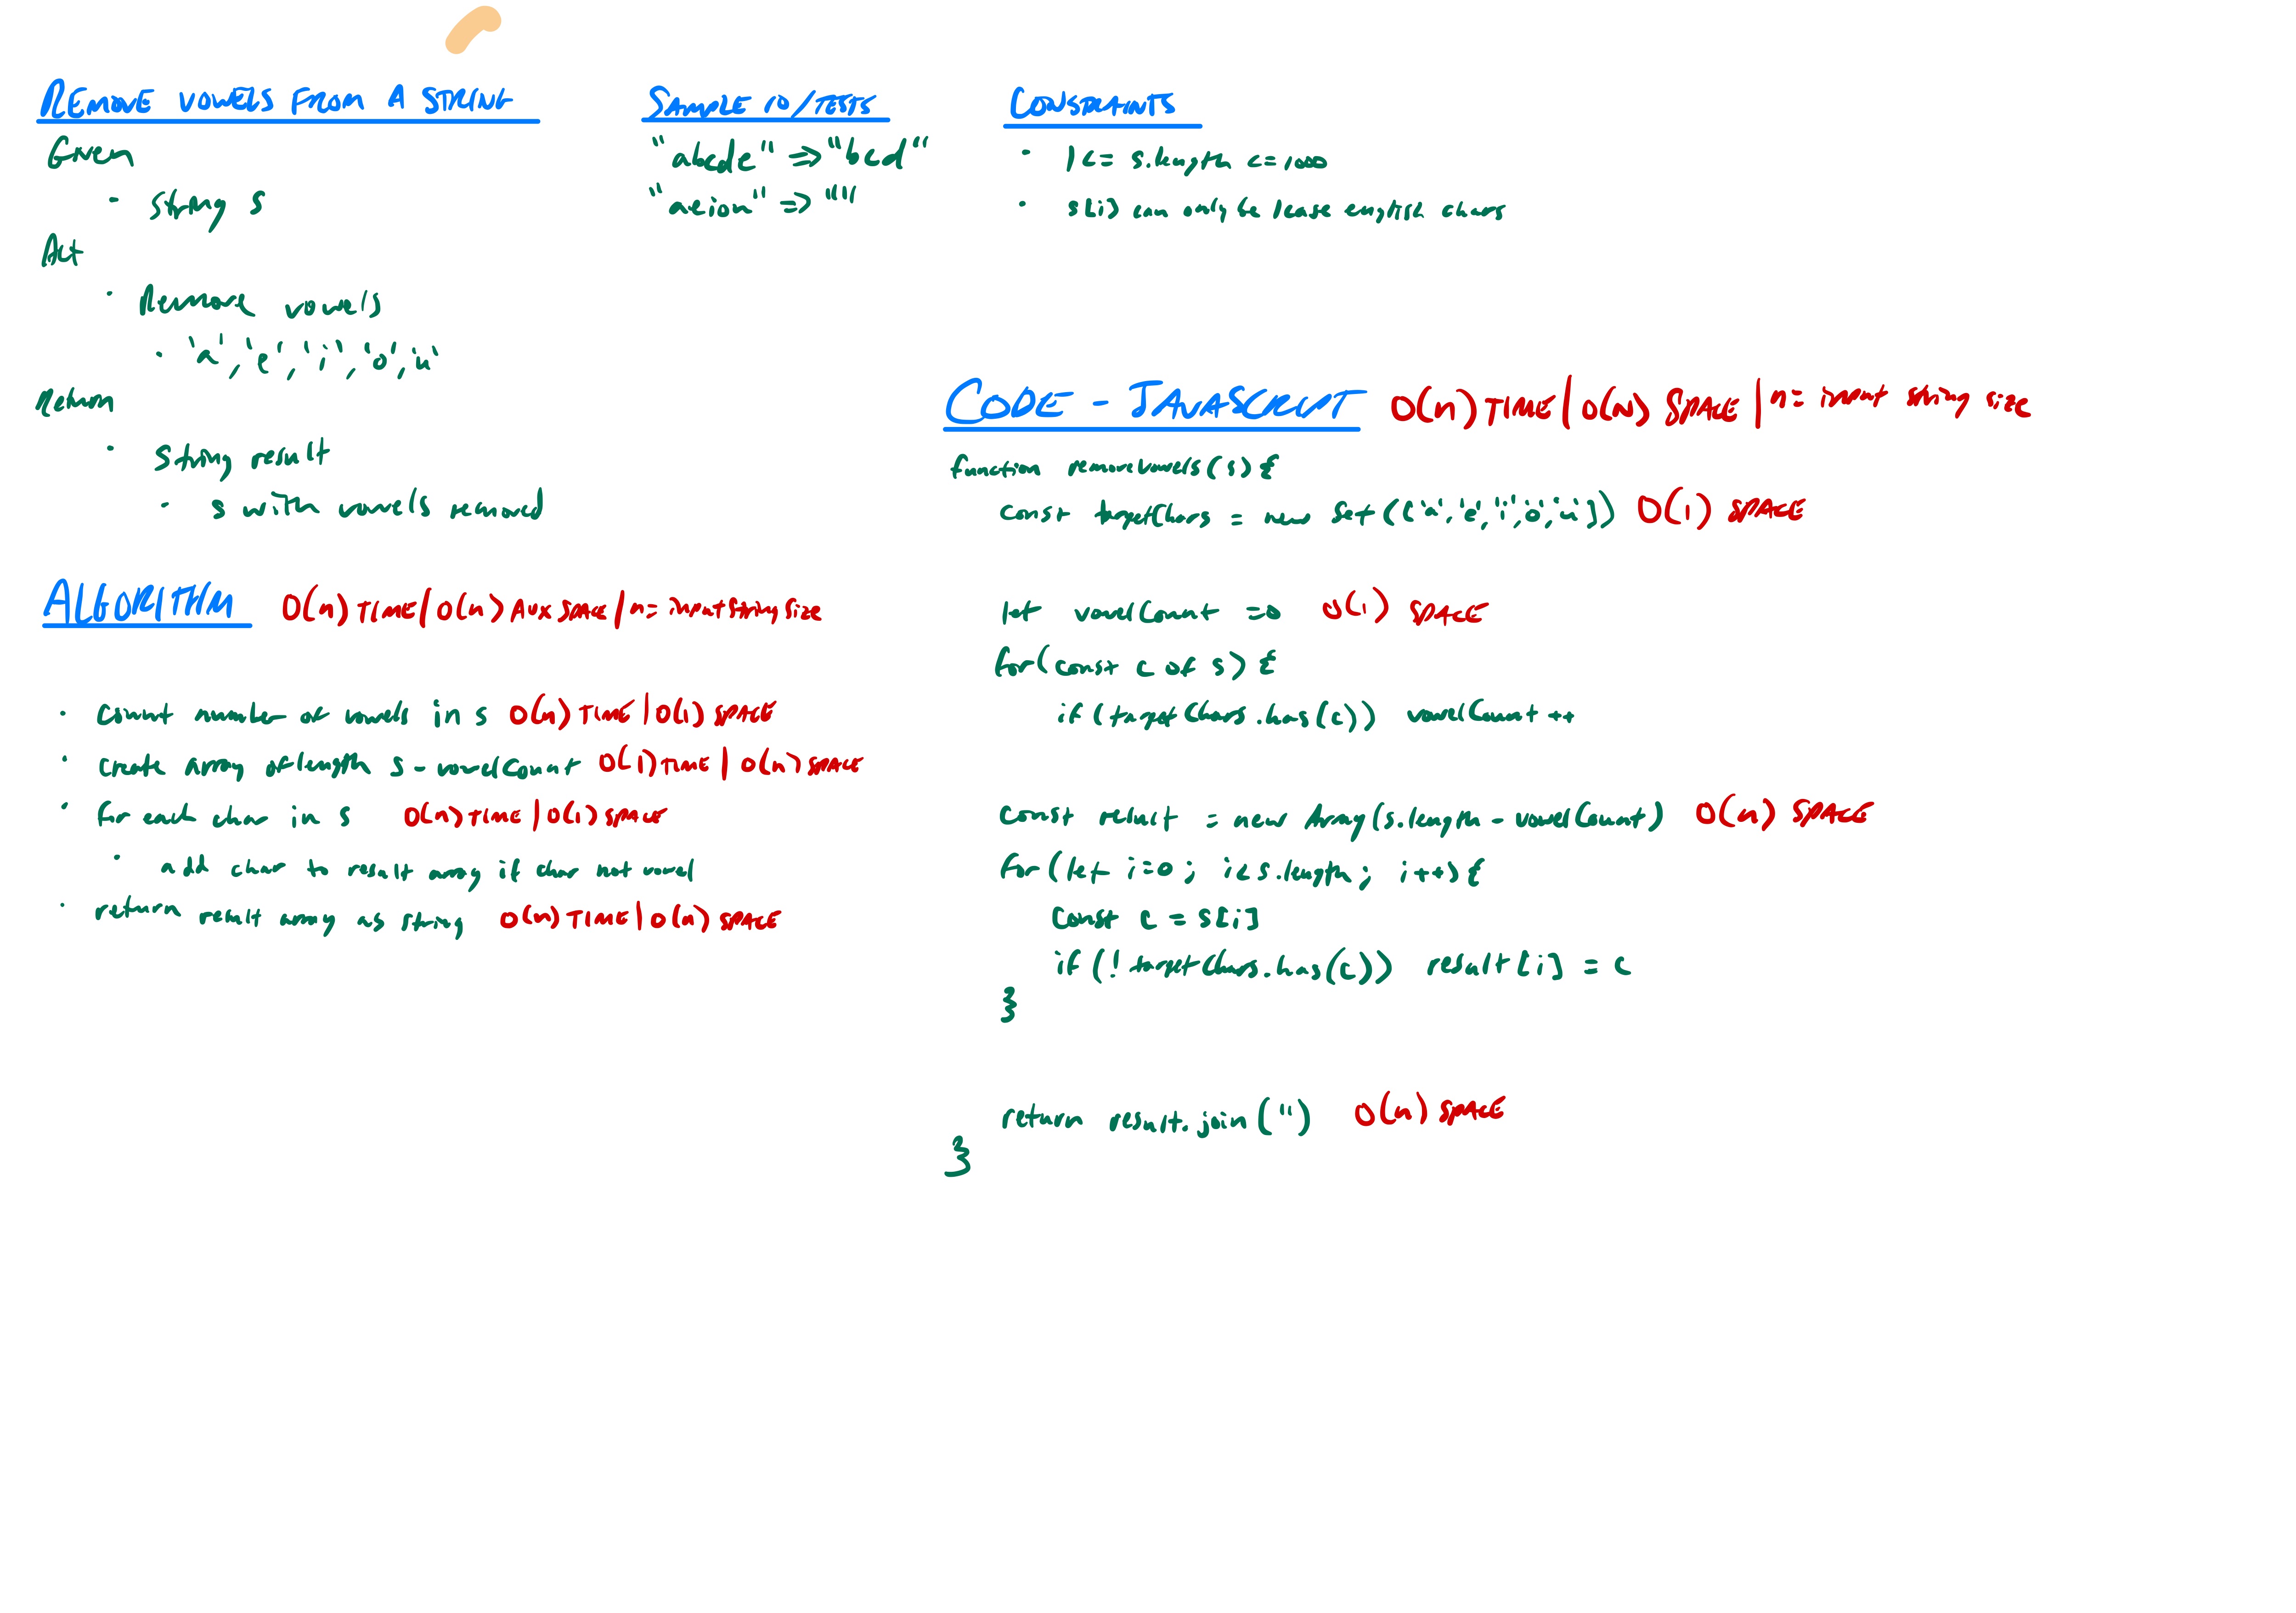 REMOVE VOWELS FROM A STRING
Given
· string s
Act
· Remove vowels
· 'a','e','i','o','u'
Return
· string result
· s with vowels removed
SAMPLE IO/TESTS
"abcde" => "bcd"
"aeiou" => ""
CONSTRAINTS
· 1 <= s.length <= 1000
· s[i] can only be lcase english chars
ALGORITHM O(n) TIME | O(n) AUX SPACE | n = input string size
· count number of vowels in s O(n) TIME | O(1) SPACE
· create array of length s - vowelCount O(1) TIME | O(n) SPACE
· for each char in s O(n) TIME | O(1) SPACE
· add char to result array if char not vowel
· return result array as string O(n) TIME | O(n) SPACE
CODE - JAVASCRIPT O(n) TIME | O(N) SPACE | n = input string size
function removeVowels(s) {
const targetChars = new Set(['a','e','i','o','u']) O(1) SPACE
let vowelCount = 0 O(1) SPACE
for(const c of s) {
if (targetChars.has(c)) vowelCount ++
const result = new Array(s.length - vowelCount) O(n) SPACE
for (let i=0; i<s.length; i++) {
const c = s[i]
if (!targetChars.has(c)) result[i] = c
}
return result.join('') O(n) SPACE
}